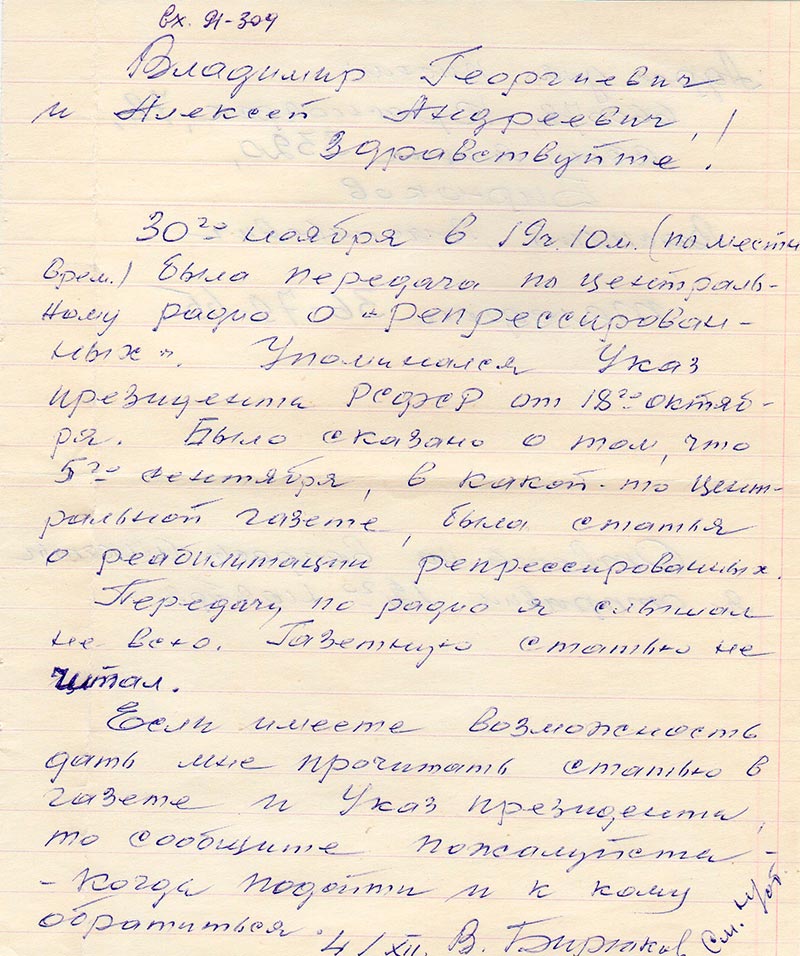 вх. Я-309
Владимир Георгиевич
и Алексей Андреевич,!
Здравствуйте!
30го ноября в 19ч.10м. (по местн
врем.) была передача по централь-
ному радио о «Репрессирован-
ных». Упоминался Указ
президента РСФСР от 18го октяб-
ря. Было сказано о том, что
5го сентября, в какой-то цент-
ральной газете, была статья
о реабилитации репрессированных.
Передачу по радио я слышал
не всю. Газетную статью не
читал.
Если имеете возможность
дать мне прочитать статью в
газете и Указ президента,
то сообщите пожалуйста -
- когда подойти и к кому
обратиться.
4/XII. В. Бирюков
См. н/об